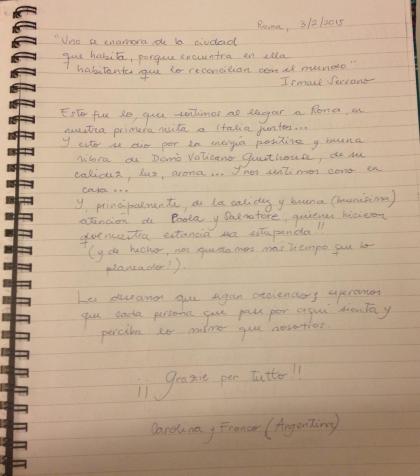 Roma, 3/2/2015
"Uno se enamora de la ciudad
que habita, porque encuentra en ella
habitantes que lo reconcilian con el mundo"
Ismael Serrano
Esto fue lo que sentimos al llegar a Roma, en
nuestra primera visita a Italia juntos...
Y esto se dio por la energía positiva y buena
vibra de Domo Vaticano Guesthouse, de su
calidez, luz, aroma... Y nos sentimos como en
casa...
Y, principalmente, de la calidez y buena (buenísima)
atención de Paola y Salvatore, quienes hicieron
que nuestra estancia sea estupenda!!
(y de hecho, nos quedamos más tiempo que lo
planeado!).
Les deseamos que sigan creciendo y esperamos
que cada persona que pase por aquí sienta y
perciba lo mismo que nosotros.
¡¡ Grazie per tutto!!
Carolina y Franco (Argentina)